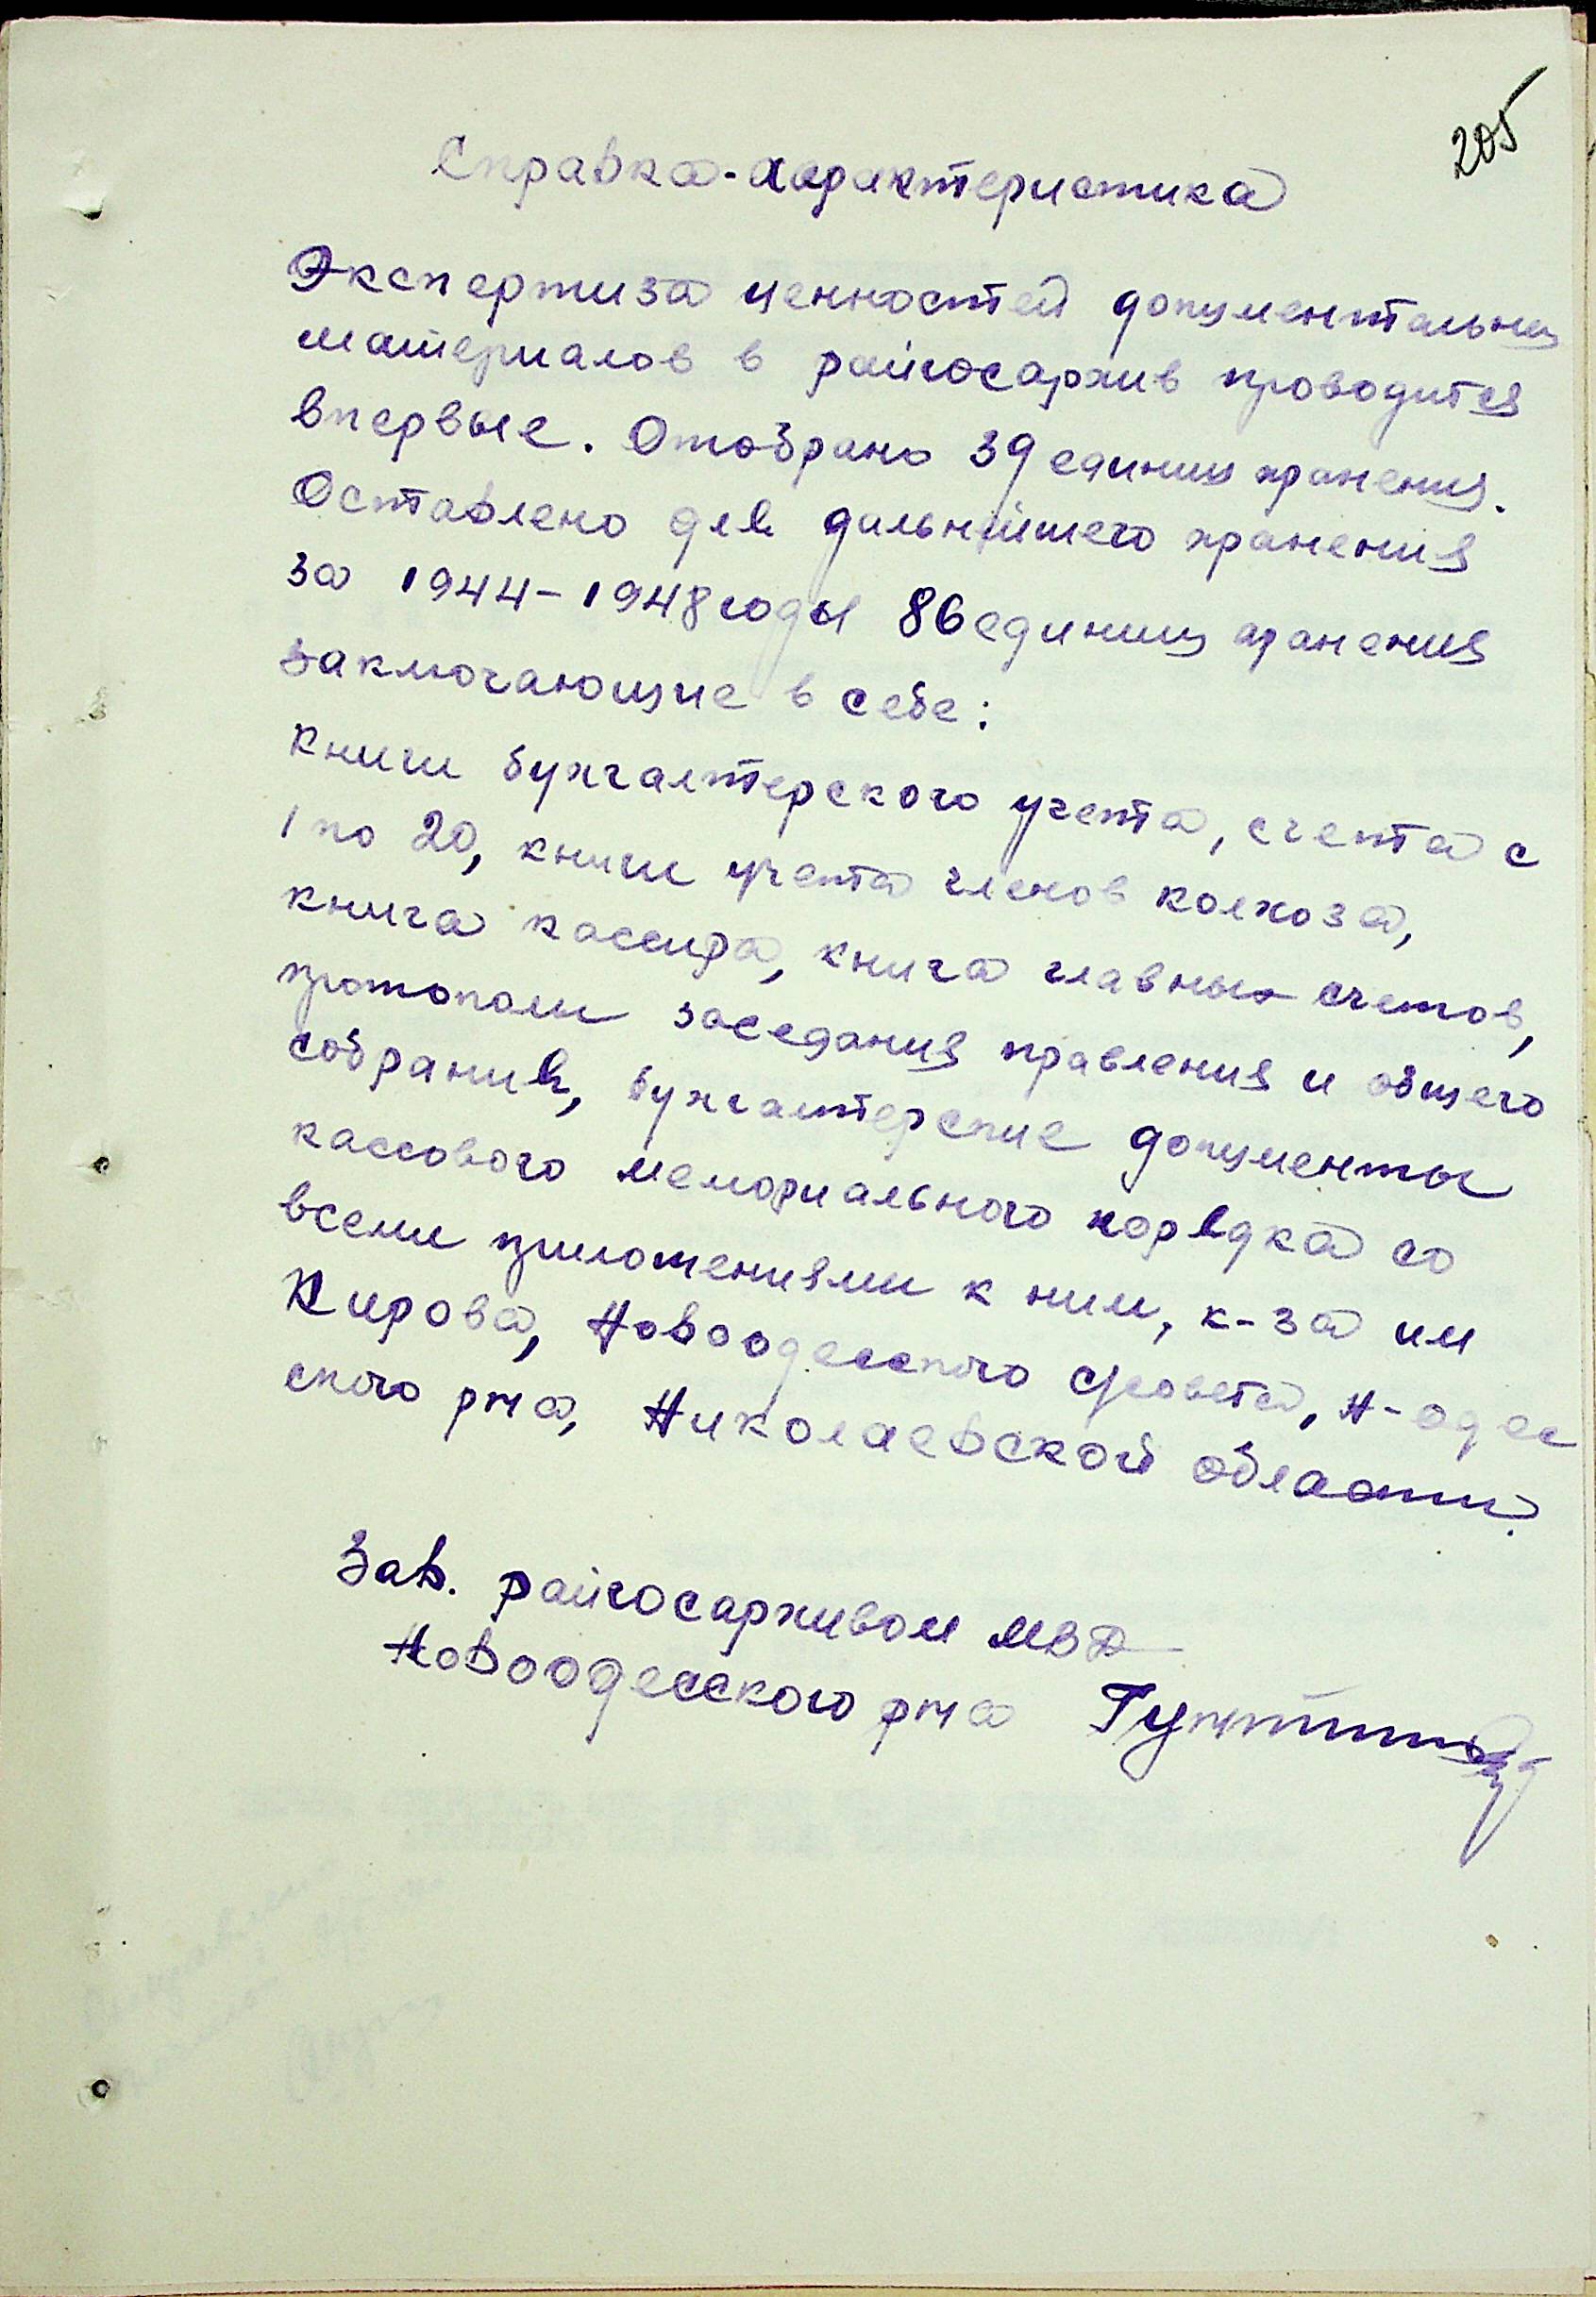 205
Справка-характеристика
Экспертиза ценностей документальных
материалов в райгосархив проводится
впервые. Отобрано 39 единиц хранения.
Оставлено для дальнейшего хранения
за 1944-1948 годы 86 единиц хранения
заключающие в себе:
Книги бухгалтерского учета, счета с
1 по 20, книги учета членов колхоза,
книга кассира, книга главных счетов,
протоколы заседания правления и общего
собрания, бухгалтерские документы
кассового мемориального порядка со
всеми приложениями к ним, к-за им
Кирова, Новоодесского с/совета, Н-Одес
ского р-на, Николаевской области.
Зав. райгосархивом МВД
Новоодесского р-на